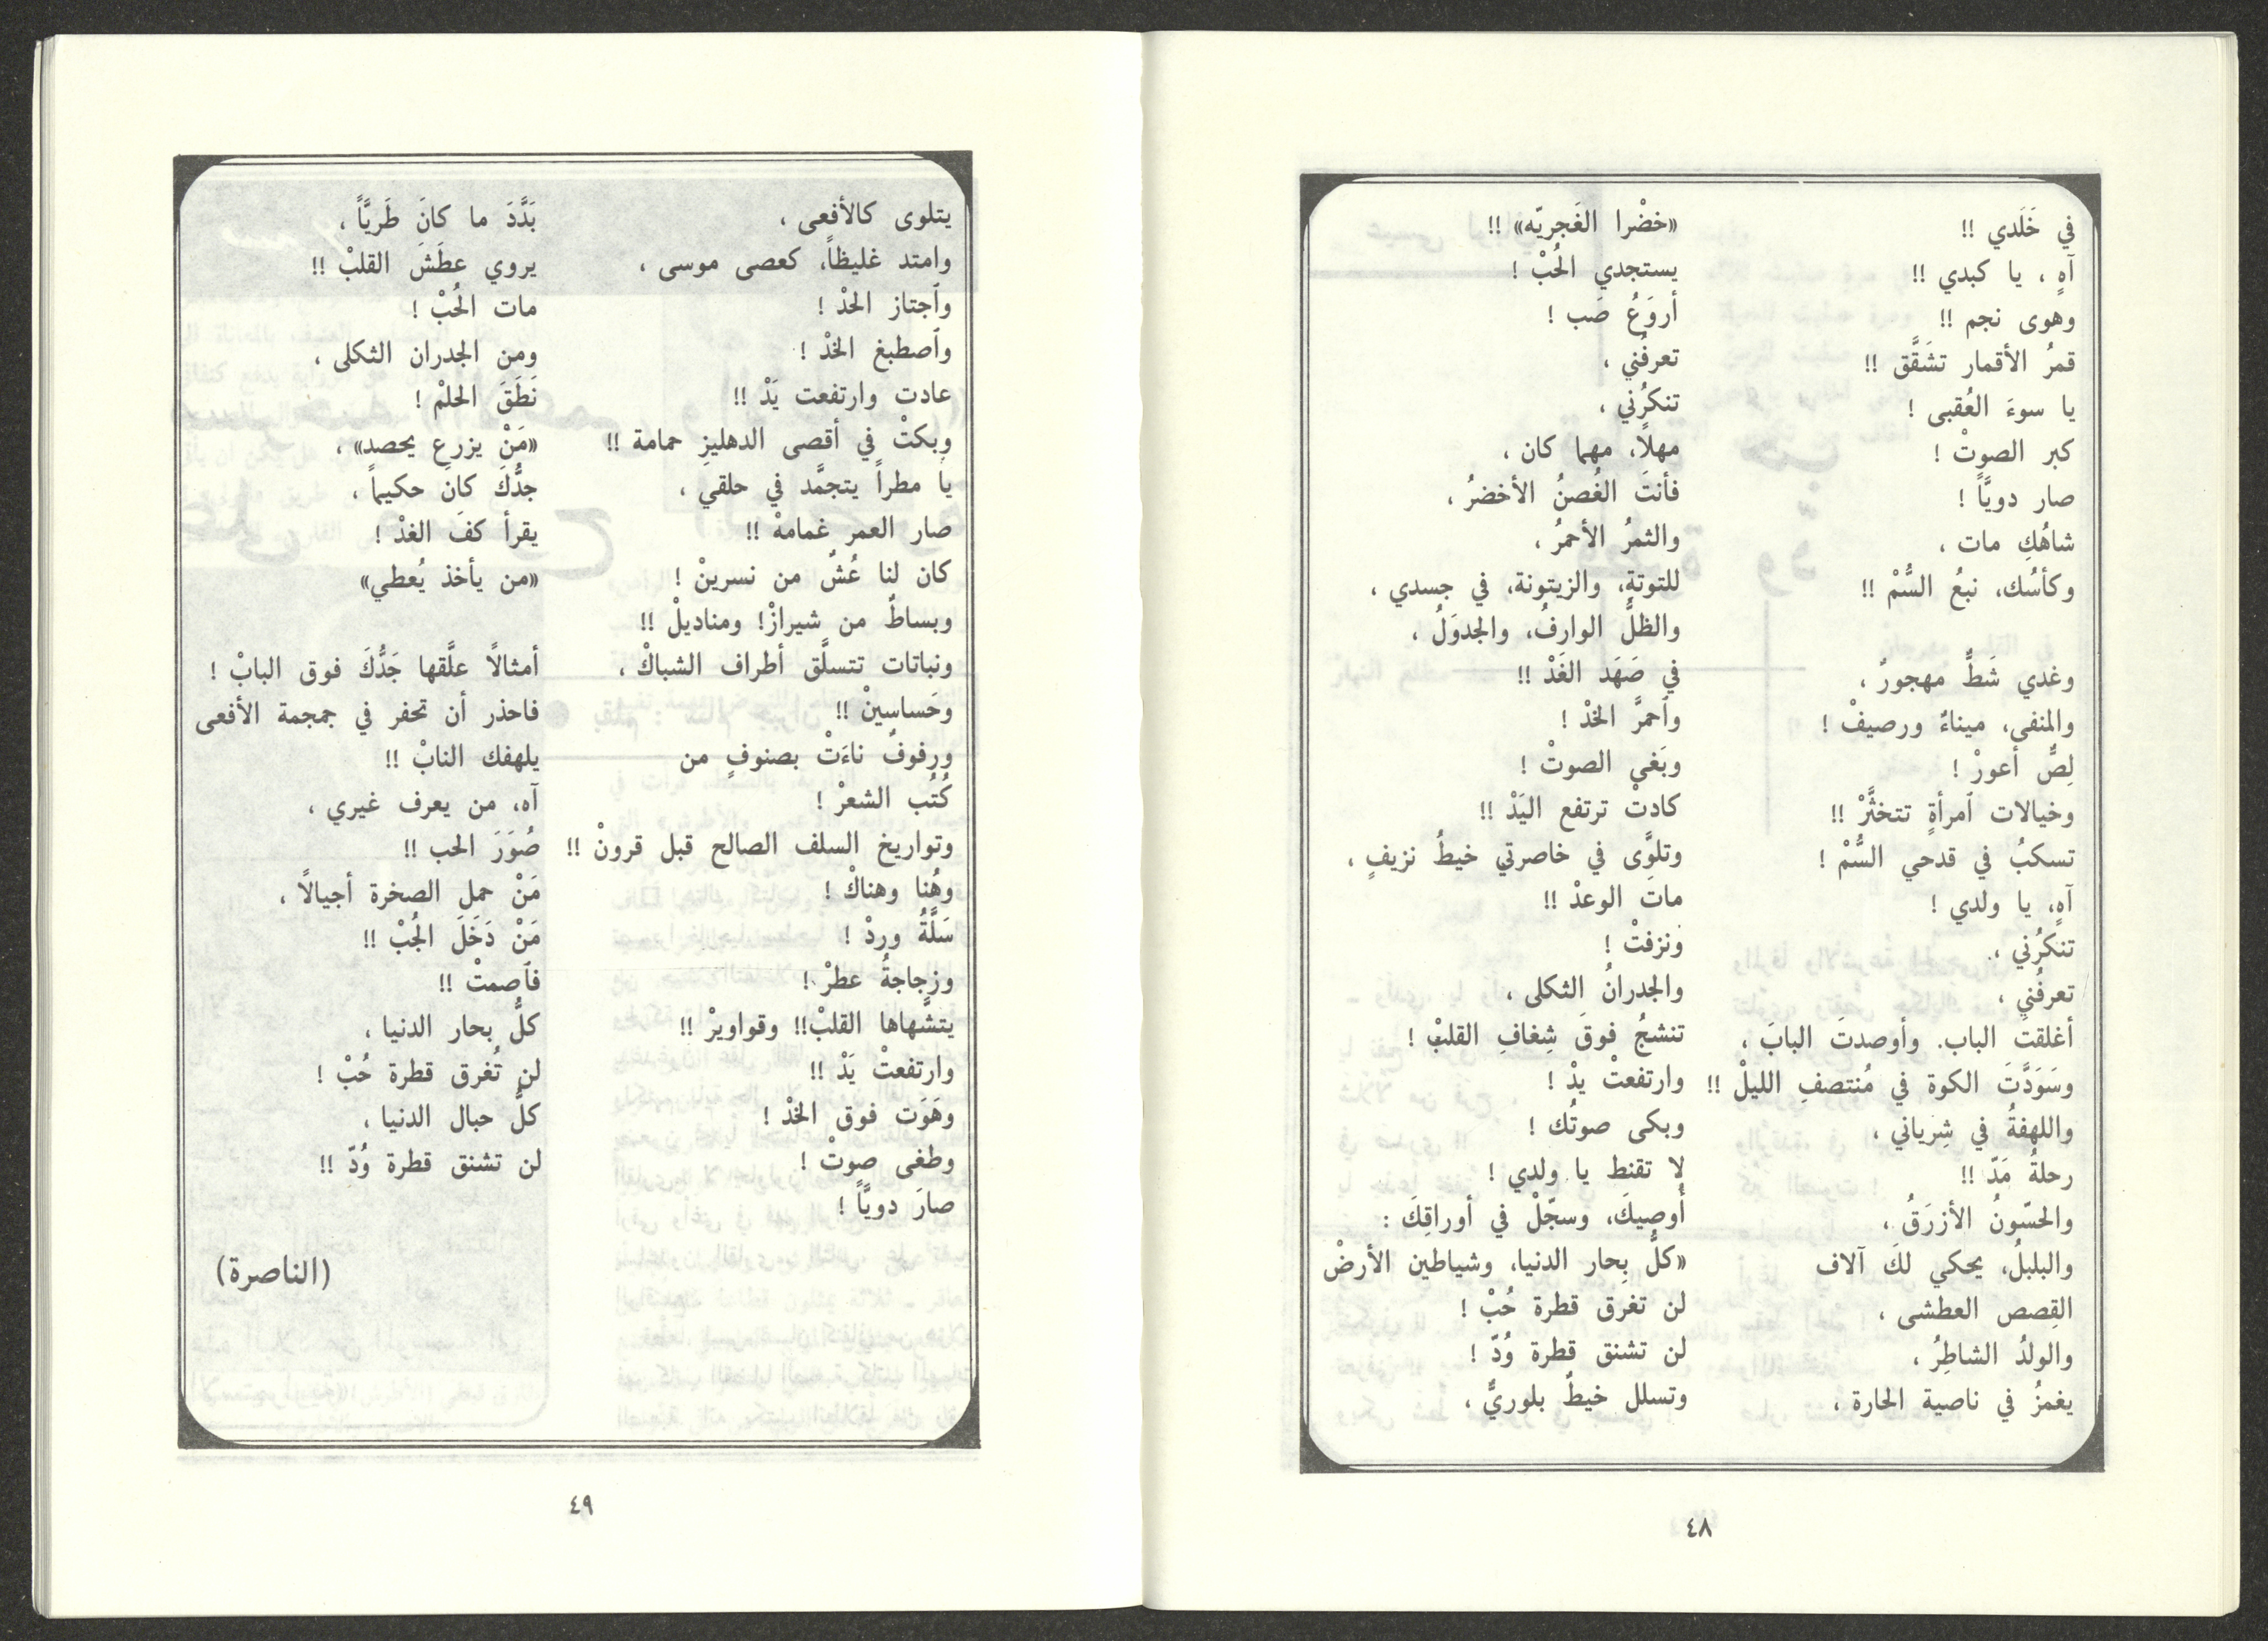 في خَلَدي !!
آهٍ ، يا كبدي !!
وهوى نجم !!
قمرُ الأقمار تشَقَّق !!
يا سوءَ العُقبى !
كبر الصوتْ !
صار دويَّاً !
شاهُكِ مات ،
وكأسُك، نبعُ السُّمْ !!
وغدي شَطٌّ مهجورٌ ،
والمنفى، ميناءٌ ورصيفْ !
لِصٌّ أعورْ !
وخيالات ٱمرأةٍ تتخثَّرْ !!
تسكبُ في قدحي السُّمْ !
آهٍ، يا ولدي !
تنكرُني ،
تعرفُني ،
أغلقتَ الباب. وأوصدتَ البابَ ،
وسَوَدَّتَ الكوة في مُنتصفِ الليلْ !!
واللهفةُ في شِرياني ،
رحلةُ مَدّ !!
والحسّونُ الأزرَقُ ،
والبلبلُ، يحكي لكَ آلاف
القِصص العطشى ،
والولدُ الشاطِرُ ،
يغمزُ في ناصية الحارة ،
«خضْرا الغَجريّه» !!
يستجدي الحُبْ !
أروَعُ صَب !
تعرفُني ،
تنكرُني ،
مهلًا، مهما كان ،
فأنتَ الغُصنُ الأخضرُ ،
والثمرُ الأحمرُ ،
للتوتةِ، والزيتونة، في جسدي ،
والظلُّ الوارفُ، والجدوَلُ ،
في صَهَد الغَدْ !!
وٱحمرَّ الخدْ !
وبَغى الصوتْ !
كادتْ ترتفع اليَدْ !!
وتلوَّى في خاصرتي خيطُ نزيفٍ ،
ماتَ الوعدْ !!
ونزفتْ !
والجدرانُ الثكلى ،
تنشجُ فوقَ شِغافِ القلبْ !
وارتفعتْ يدْ !
وبكى صوتُك !
لا تقنط يا ولدي !
أُوصيكَ، وسجّلْ في أوراقِكَ :
«كلُّ بِحار الدنيا، وشياطين الأرضْ
لن تغرق قطرة حُبْ !
لن تشنق قطرة وُدّ !
وتسلل خيطٌ بلوريٌّ ،
٤٨
يتلوى كالأفعى ،
وامتد غليظاً، كعصى موسى ،
وٱجتاز الحدْ !
وٱصطبغ الخدْ !
عادت وارتفعت يَدْ !!
وبكتْ في أقصى الدهليزِ حمامة !!
يا مطراً يتجمَّد في حلقي ،
صار العمر غمامهْ !!
كان لنا عُشٌ من نسرينْ !
وبساطٌ من شيرازْ! ومناديلْ !!
ونباتات تتسلَّق أطراف الشباكْ ،
وحَساسينْ !!
ورفوفٌ ناءَتْ بصنوفٍ من
كُتُب الشعرْ !
وتواريخ السلف الصالح قبل قرونْ !!
وهُنا وهناكْ !
سَلَّةُ وردْ !
وزجاجةُ عطرْ !
يتشَّهاها القلبْ!! وقواريرْ !!
وارتفعتْ يَدْ !!
وهَوَت فوق الخدْ !
وطغى صوتْ !
صارَ دويَّاً !
بَدَّدَ ما كانَ طَريَّاً ،
يروي عطَشَ القلبْ !!
مات الحُبْ !
ومن الجدران الثكلى ،
نَطَقَ الحلمْ !
«مَنْ يزرع يحصد» ،
جدُّكَ كانَ حكيماً ،
يقرأ كفَ الغدْ !
«من يأخذ يُعطي»
أمثالًا علَّقها جَدُّكَ فوق البابْ !
فاحذر أن تحفر في جمجمة الأفعى
يلهفك النابْ !!
آه، من يعرف غيري ،
صُوَرَ الحب !!
مَنْ حمل الصخرة أجيالًا ،
مَنْ دَخَلَ الجُبْ !!
فٱصمتْ !!
كلُّ بحار الدنيا ،
لن تُغرق قطرة حُبْ !
كلُّ حبال الدنيا ،
لن تشنق قطرة وُدّ !!
(الناصرة)
٤٩